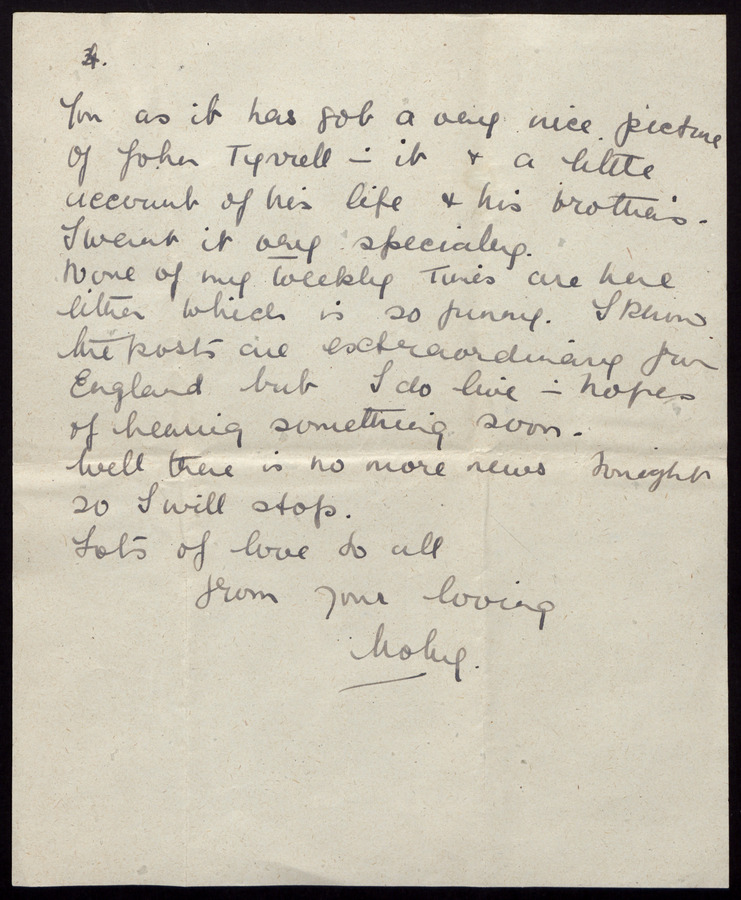 4.
You as it has got a very nice picture
of John Tyrrell in it & a little
account of his life & his brothers.
I want it very specialy.
None of my Weekly Times are here
either which is so funny. I know
the posts are extraordinary from
England but I do live in hopes
of hearing something soon.
Well there is no more news tonight
so I will stop.
Lots of love to all
from your loving